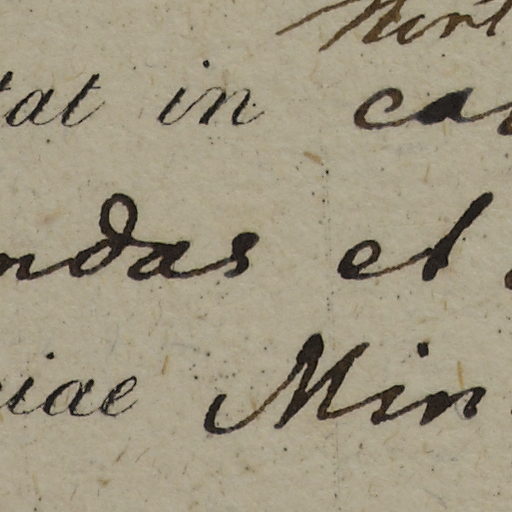 Hort
tat in ca
ndas et
iae Min